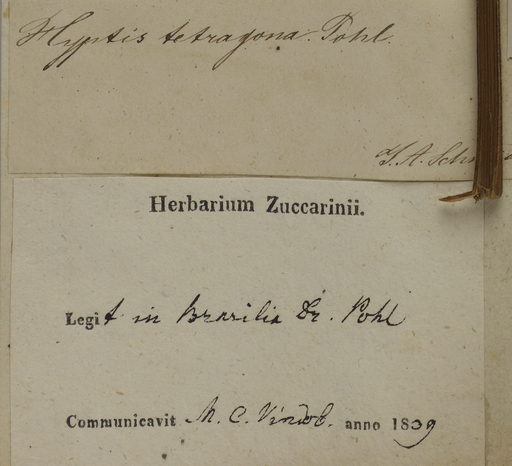 Hyptis tetragona. Pohl.
J. A. Sch
Herbarium Zuccarinii.
Legit in Brasilia Dr. Pohl
Communicavit M. C. Vindob. anno 1839